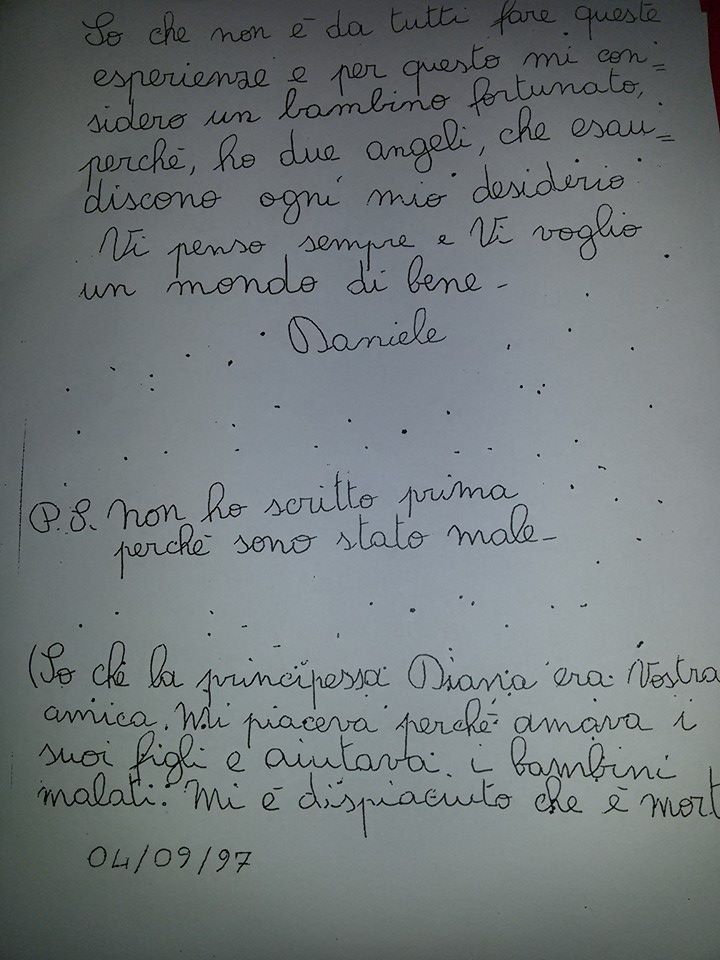 So che non è da tutti fare queste
esperienze e per questo mi con=
sidero un bambino fortunato,
perchè, ho due angeli, che esau=
discono ogni mio desiderio
Vi penso sempre e Vi voglio
un mondo di bene -
Daniele
P.S. Non ho scritto prima
perchè sono stato male -
(So chè la principessa Diana era Vostra
amica. Mi piaceva perchè amava i
suoi figli e aiutava i bambini
malati. Mi è dispiaciuto che è mort
04/09/97